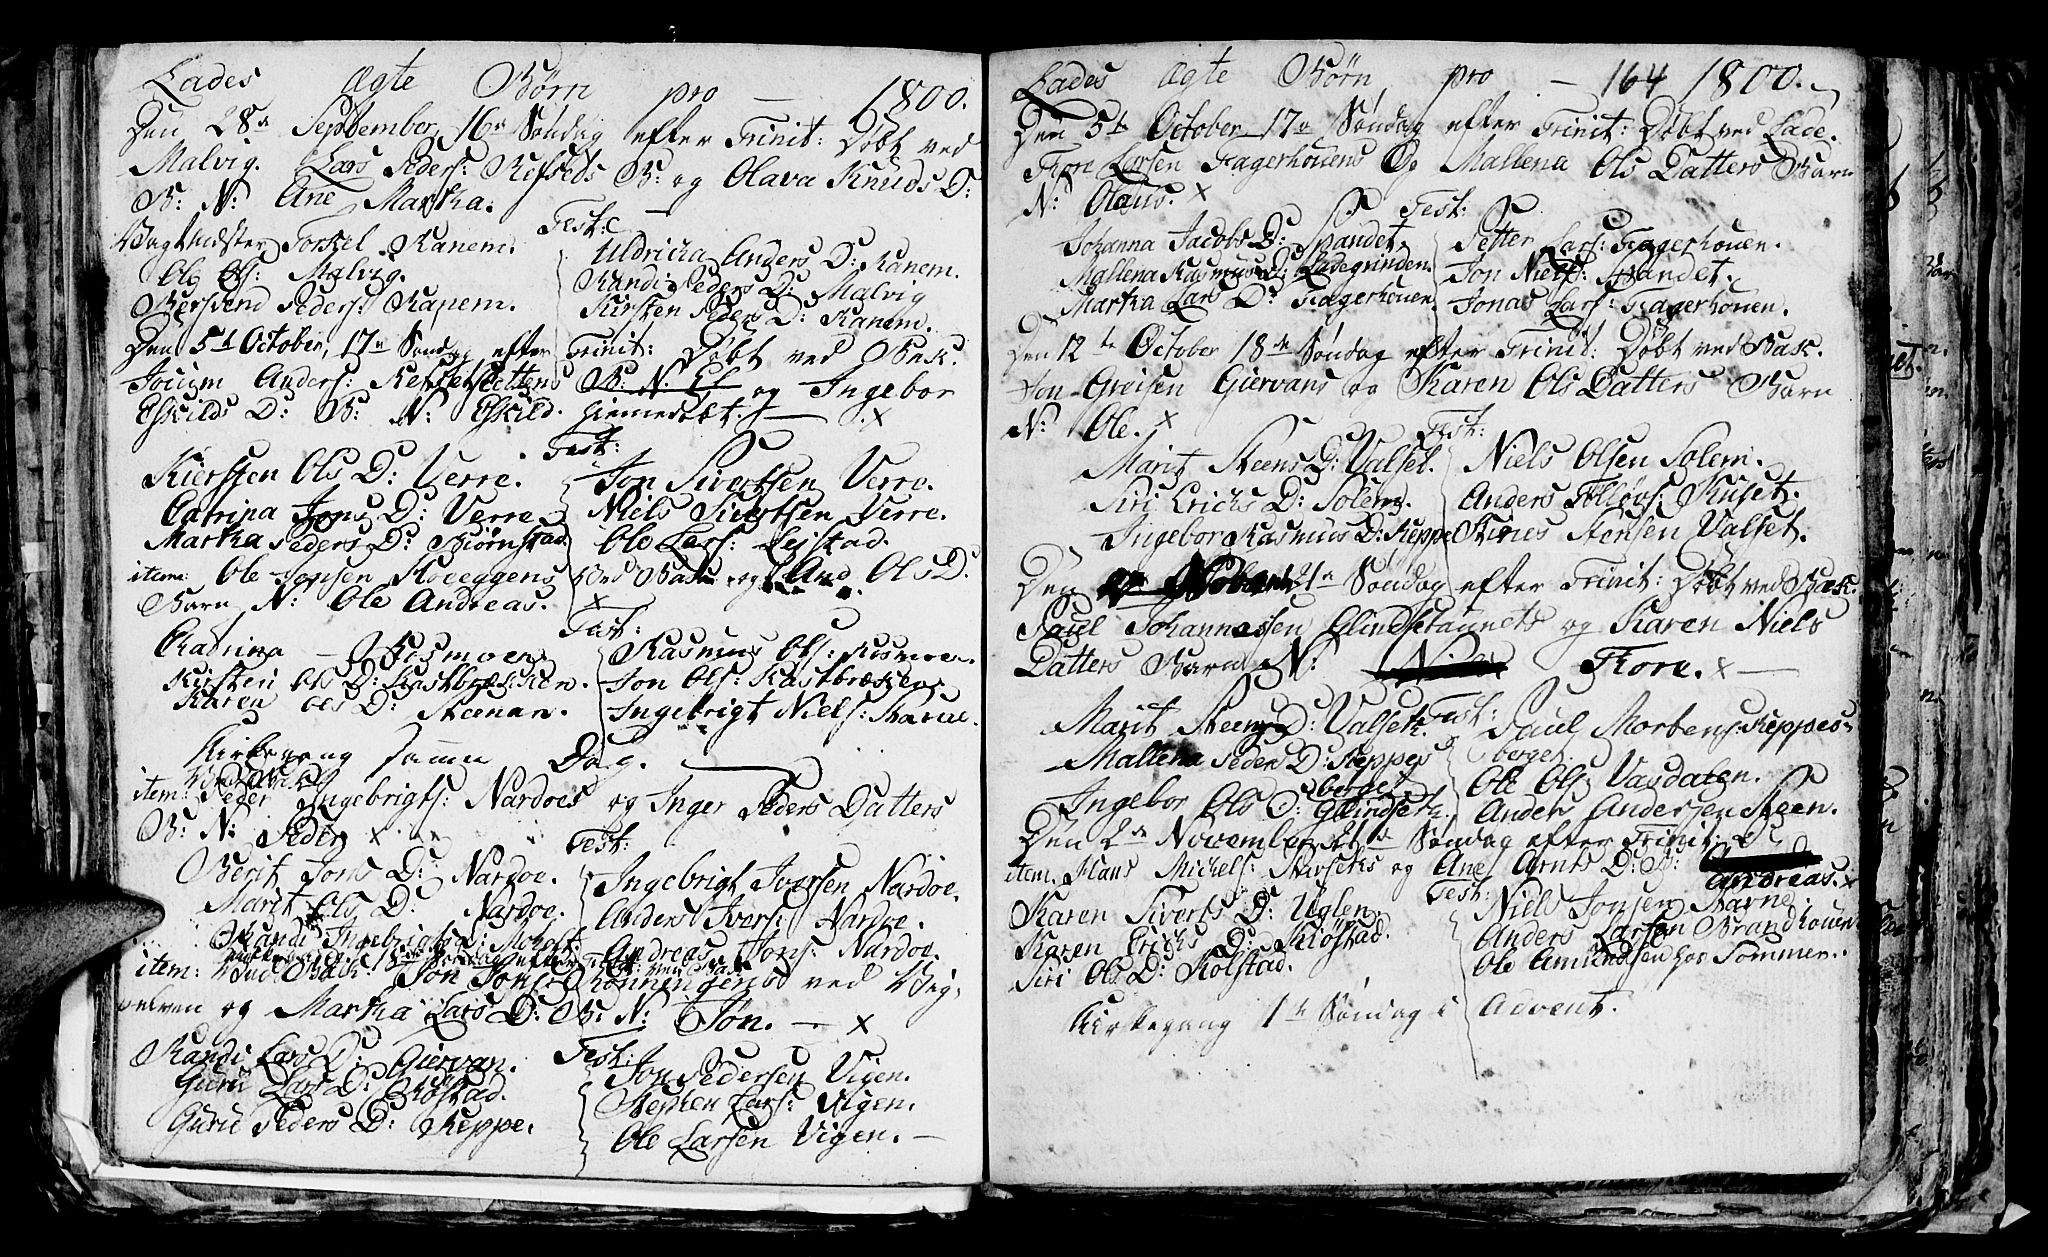 Lades Ægte Børn pro — 1800.
Den 28de September, 16de Søndag efter Trinit: Døbt ved
Malvig. Lars Peders: Refseds B: og Olava Knuds D:
B: N: Ane Martha.
Test:
Vagtmester Torkel Ranem.
Ole Ols: Malvig.
Bersvend Peders: Ranem.
Uldricha Anders D: Ranem.
Randi Peders D: Malvig
Kirsten Peders D: Ranem.
Den 5te October, 17de Søndag efter Trinit: Døbt ved Bak.
Jocum Anders: og Ingebor
Eskilds D: B: N: Eskild. Hiemedøbt. — x
Test:
Kiersten Ols D: Verre.
Catrina Jons D: Verre
Martha Peders D: Biørnstad.
Jon Sivertsen Verre.
Niels Sivertsen Verre.
Ole Lars: Leistad.
item: Ole Jonsen Ved Bak og Ane Ols D:
Barn N: Ole Andreas. x
Test:
Catrina — Rosmoen
Kirsten Ols D: Kastbrækken.
Karen Ols D: Steenan.
Rasmus Ols: Rosmoen.
Jon Ols: Kastbrækken.
Ingebrigt Niels:
Kirkegang samme Dag.
ved Bak
item: Peder Ingebrigts: Nardoes og Inger Peders Datters
B: N: Peder x
Test:
Berit Jons D: Nardoe.
Marit Ols D: Nardoe.
Randi Ingebrigts D: Moholt.
Ingebrigt Iversen Nardoe.
Anders Ivers: Nardoe.
Andreas Jons: Nardoe.
item: Ved Bak. Jon Jons: Rønningens ved Vig-
elven og Martha Lars D: B: N: Jon. — x
Test:
Randi Lars D: Giervan.
Guru Lars D:
Guru Peders D: Reppe.
Jon Pedersen Vigen.
Stephen Lars: Vigen.
Ole Larsen Vigen. —
Lades Ægte Børn pro — 164 1800.
Den 5te October 17de Søndag efter Trinit: Døbt ved Lade.
Thor Larsen Fagerhouens Og Mallena Ols Datters Barn
N: Olaus. x
Test:
Johanna Jacobs D: Spandet.
Mallena Rasmus D: Ladegrinden.
Martha Lars D: Fagerhouen.
Petter Lars: Fagerhouen.
Jon Niels: Spandet.
Jonas Lars: Fagerhouen.
Den 12te October 18de Søndag efter Trinit: Døbt ved Bak.
Jon Greisen Giervans og Karen Ols Datters Barn
N: Ole. x
Test:
Marit Steens D: Valset.
Siri Erichs D: Solem.
Ingebor Rasmus D: Reppe
Niels Olsen Solem.
Anders Kuset.
Stensen Valset.
Den 21de Søndag efter Trinit: Døbt ved Bak.
Paul Johannessen Glindstaunets og Karen Niels
Datters Barn N: Thore. x —
Test:
Marit Steens D: Valset.
Mallena Peders D: Reppes
berget.
Ingebor Ols D: Glindset.
Paul Mortens: Reppes-
berget
Ole Ols: Vasdalen.
Anders Andersen Steen.
Den 2de November 21de Søndag efter Trinit:
item. Hans Michels: og Ane Arnts D: B:
Andreas. x
Test:
Karen Siverts D: Uglen.
Karen Erichs D:
Siri Ols D: Kolstad.
Niels Jonsen Stavne.
Anders Larsen Brandhouen
Ole Amundsen hos Sommer.
Kirkegang 1te Søndag i Advent.